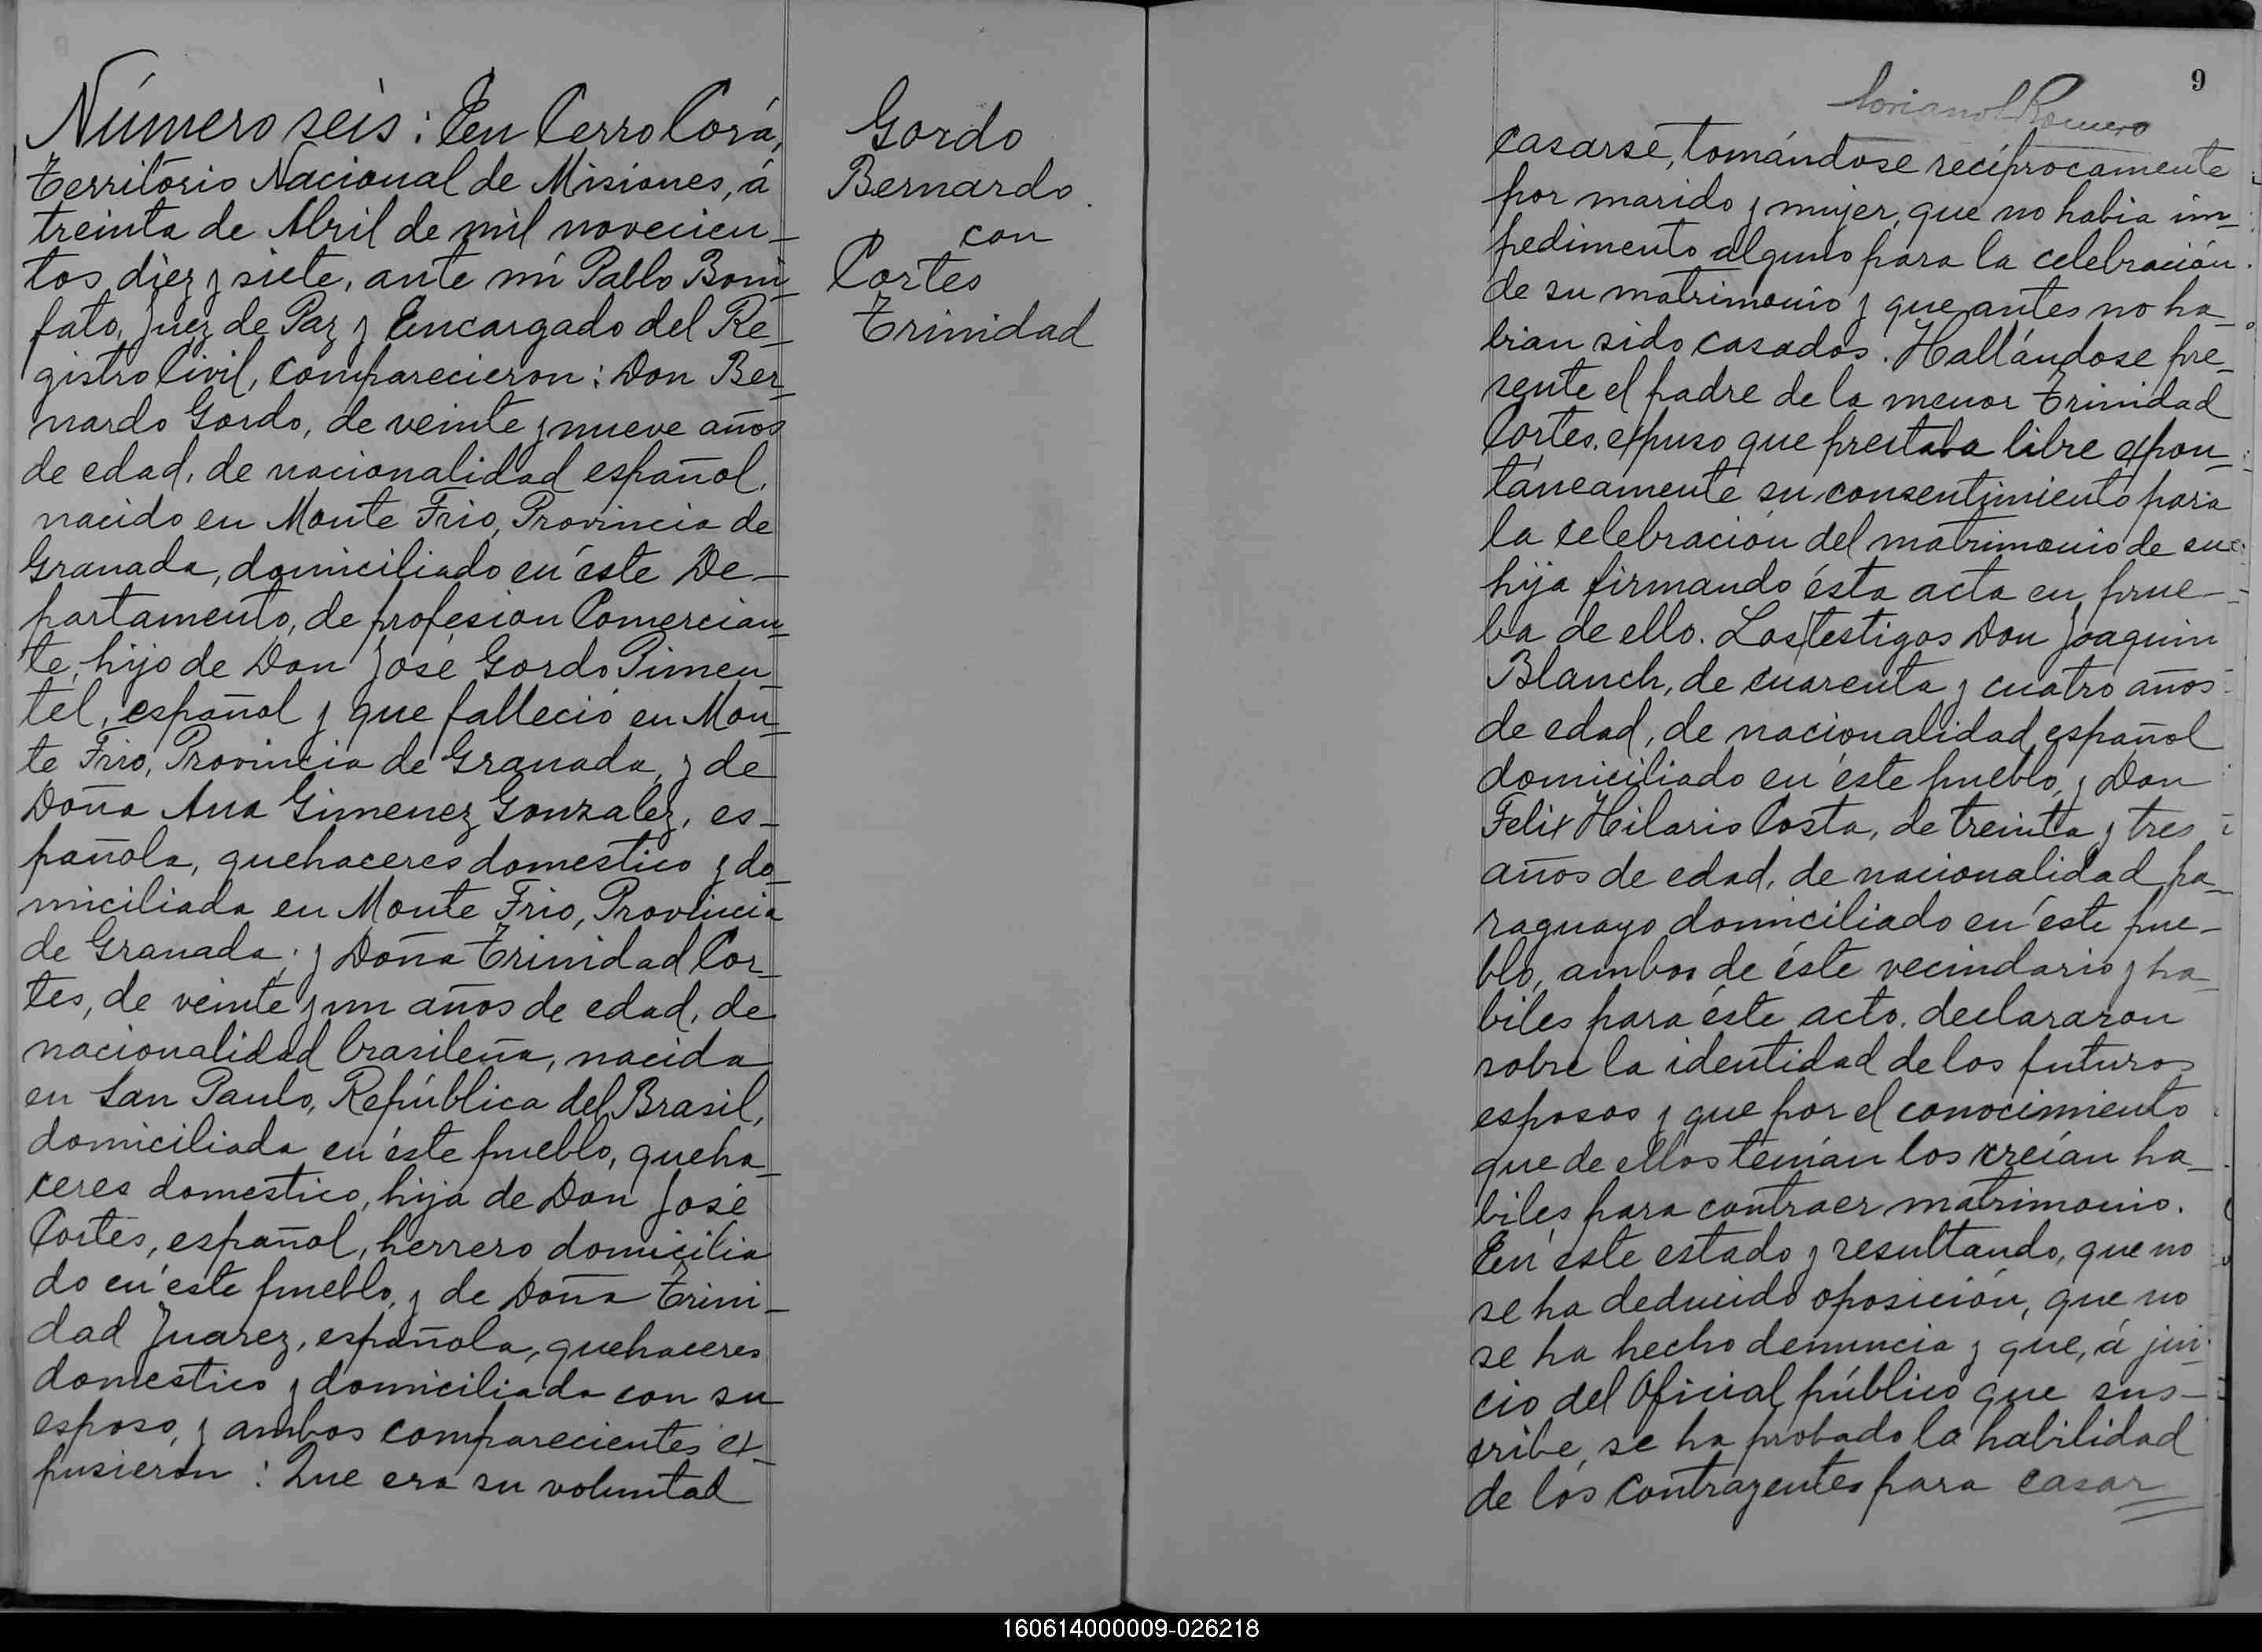 Número seis: En Cerro Corá,
Territorio Nacional de Misiones, á
treinta de Abril de mil novecien-
tos diez y siete, ante mí Pablo Boni-
fato, Juez de Paz y Encargado del Re-
gistro Civil, comparecieron: Don Ber-
nardo Gordo, de veinte y nueve años
de edad, de nacionalidad español,
nacido en Monte Frio, Provincia de
Granada, domiciliado en éste De-
partamento, de profesion Comercian-
te, hijo de Don José Gordo Pimen-
tel, español y que falleció en Mon-
te Frio, Provincia de Granada, y de
Doña Ana Gimenez Gonzalez, es-
pañola, quehaceres domestico y do-
miciliada en Monte Frio, Provincia
de Granada; y Doña Trinidad Cor-
tes, de veinte y un años de edad, de
nacionalidad brasileña, nacida
en San Paulo, República del Brasil,
domiciliada en éste pueblo, queha-
ceres domestico, hija de Don José
Cortes, español, herrero domicilia
do en éste pueblo, y de Doña Trini-
dad Juarez, española, quehaceres
domestico y domiciliada con su
esposo, y ambos comparecientes ex-
pusieron: Que era su voluntad
Gordo
Bernardo
con
Cortes
Trinidad
9
Romero
casarse, tomándose recíprocamente
por marido y mujer, que no habia im-
pedimento alguno para la celebración
de su matrimonio y que antes no ha-
bian sido casados. Hallándose pre-
sente el padre de la menor Trinidad
Cortes, expuso que prestaba libre expon-
táneamente su consentimiento para
la celebración del matrimonio de su
hija firmando ésta acta en prue-
ba de ello. Los testigos Don Joaquin
Blanch, de cuarenta y cuatro años
de edad, de nacionalidad español
domiciliado en éste pueblo, y Don
Felix Hilario Costa, de treinta y tres
años de edad, de nacionalidad pa-
raguayo domiciliado en éste pue-
blo, ambos de éste vecindario y ha-
biles para éste acto, declararon
sobre la identidad de los futuros
esposos y que por el conocimiento
que de ellos tenían los creían ha-
biles para contraer matrimonio.
En éste estado y resultando, que no
se ha deducido oposición, que no
se ha hecho denuncia y que, á jui-
cio del Oficial público que sus-
cribe, se ha probado la habilidad
de los contrayentes para casar
160614000009-026218